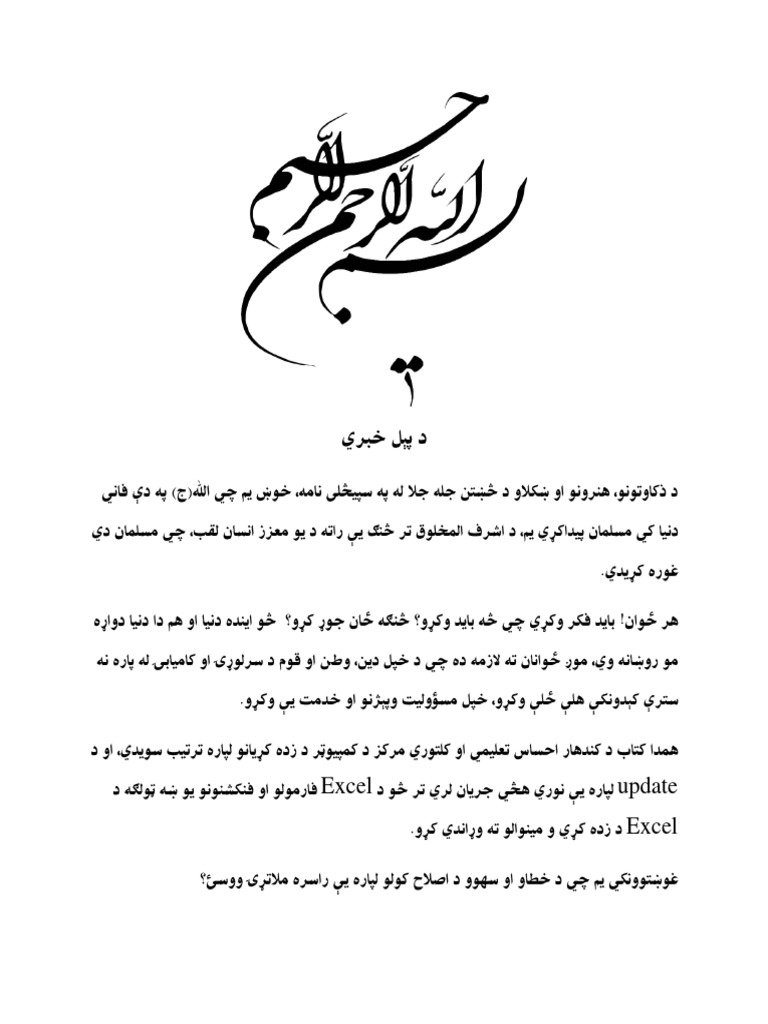 بسم الله الرحمن الرحیم
د پېل خبري
د ذکاوتونو، هنرونو او ښکلاو د څښتن جله جلا له په سپیڅلی نامه، خوښ یم چي الله(ج) په دې فاني
دنیا کي مسلمان پیداکړي یم، د اشرف المخلوق تر څنګ یې راته د یو معزز انسان لقب، چي مسلمان دي
غوره کړیدي.
هر ځوان! باید فکر وکړي چي څه باید وکړو؟ څنګه ځان جوړ کړو؟ څو اینده دنیا او هم دا دنیا دواړه
مو روښانه وي، موږ ځوانان ته لازمه ده چي د خپل دین، وطن او قوم د سرلوړۍ او کامیابۍ له پاره نه
ستړي کېدونکې هلې ځلې وکړو، خپل مسؤولیت وپېژنو او خدمت یې وکړو.
همدا کتاب د کندهار احساس تعلیمي او کلتوري مرکز د کمپیوټر د زده کړیانو لپاره ترتیب سویدي، او د
update لپاره یې نوري هڅي جریان لري تر څو د Excel فارمولو او فنکشنونو یو ښه ټولګه د
Excel د زده کړي و مینوالو ته وړاندي کړو.
غوښتوونکي یم چي د خطاو او سهوو د اصلاح کولو لپاره یې راسره ملاتړۍ ووسئ؟